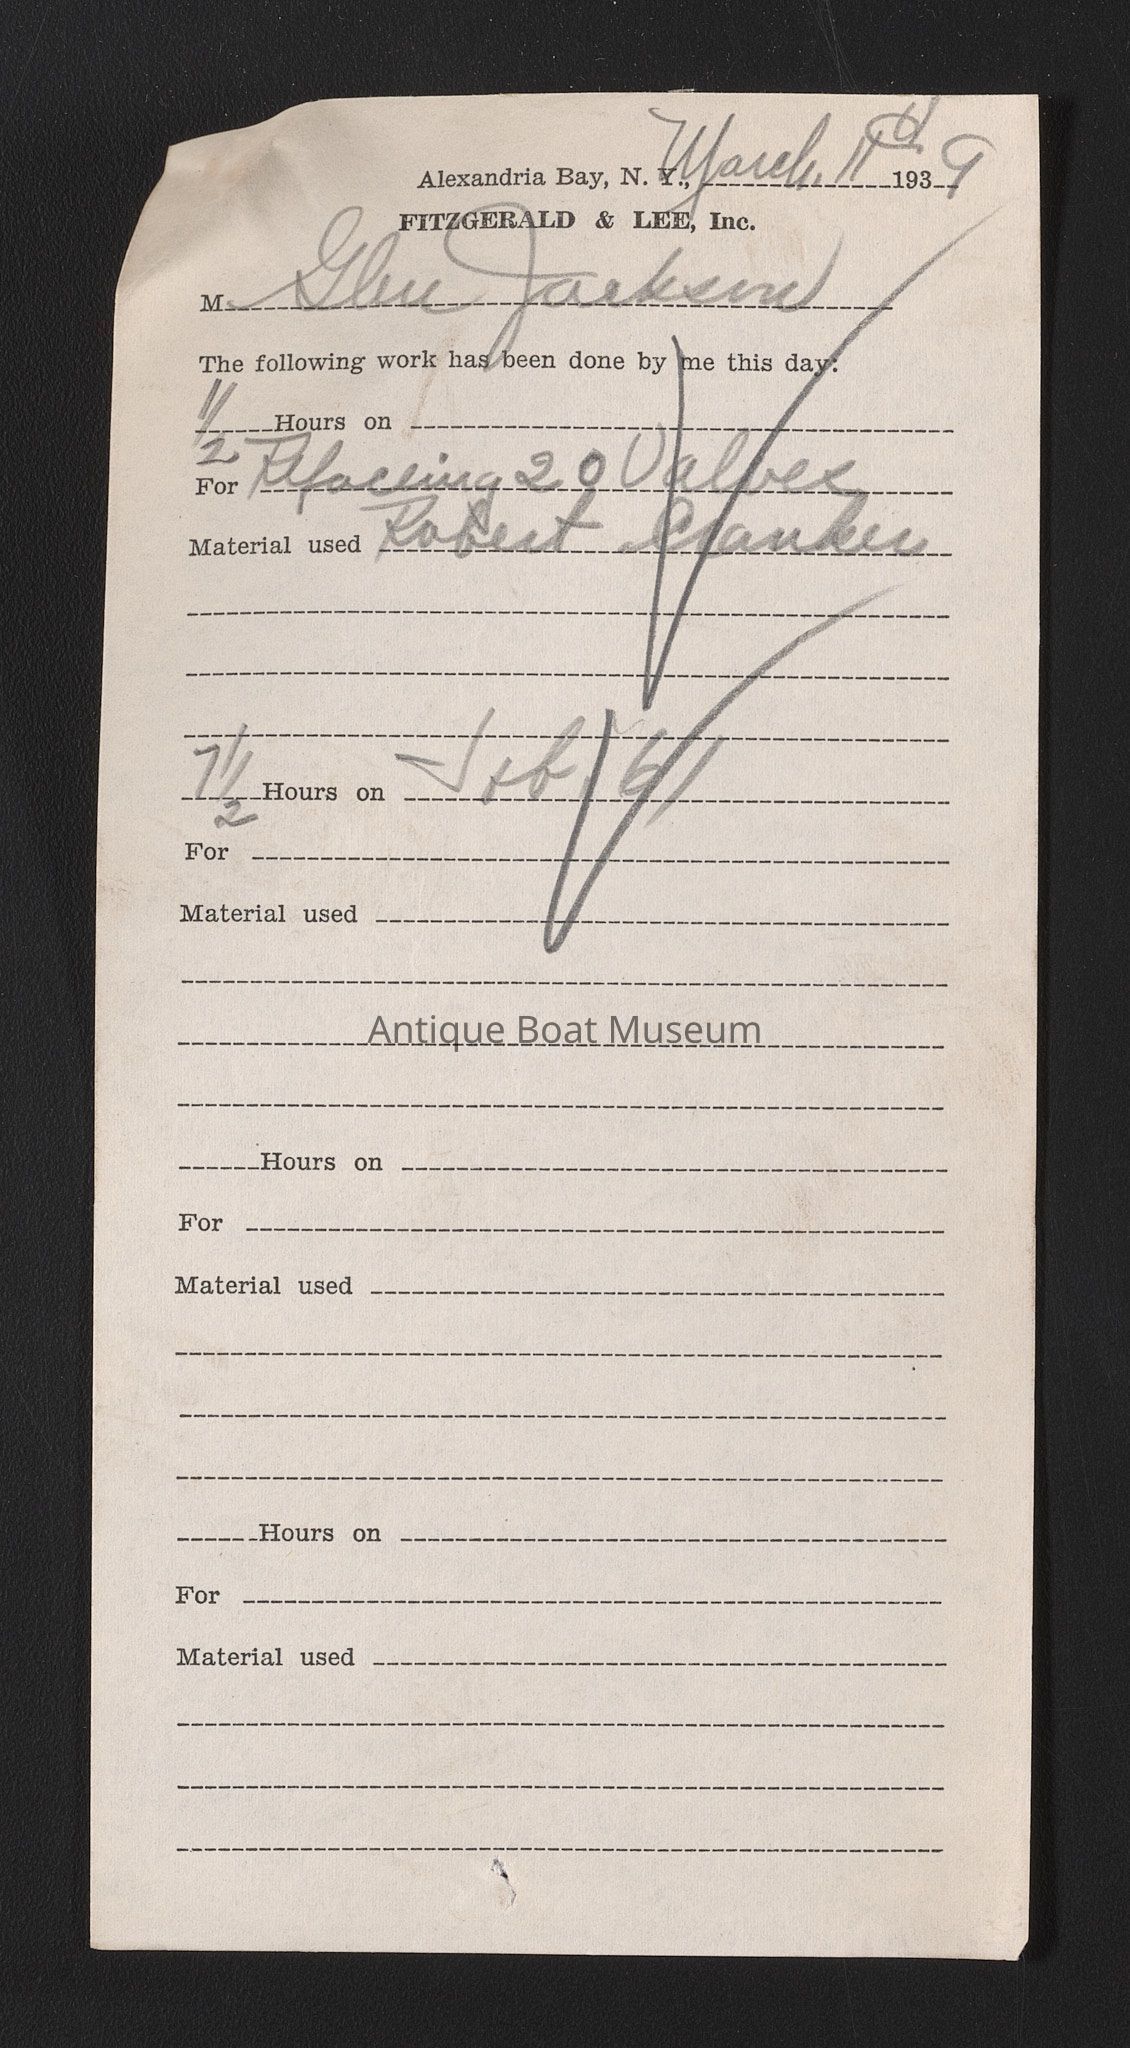 Alexandria Bay, N. Y., March 11th 1939
FITZGERALD & LEE, Inc.
M. Glen Jackson
The following work has been done by me this day:
1/2 Hours on
For Refaceing 20 Valves
Material used Robert Cranker
7 1/2 Hours on Job 61
For
Material used
Antique Boat Museum
Hours on
For
Material used
Hours on
For
Material used